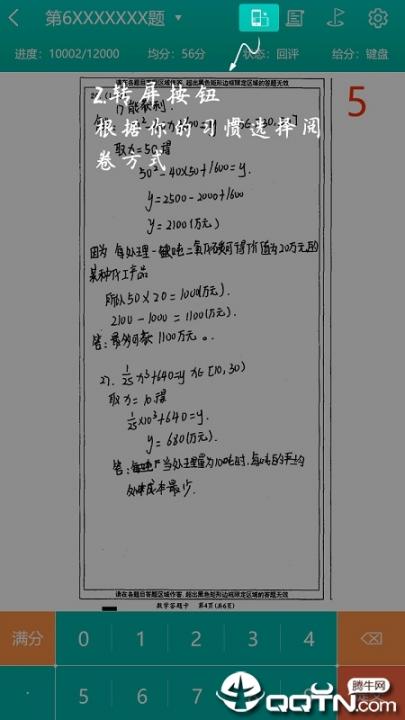 第6XXXXXXX题
进度：10002/12000 均分：56分 状态：回评 给分：键盘
请在各题目答题区域作答，超出黑色矩形边框限定区域的答题无效
2.转屏按钮
根据你的习惯选择阅
卷方式
5
不能获利
取x=50得
50²-40×50+1600=y.
y=2500-2000+1600
y=2100(万元)
因为 每处理一吨二氧化碳可得价值为20万元的
某种化工产品
所以50×20=1000(万元).
2100-1000=1100(万元).
答：最多可亏 1100万元。
27. 1/25x³+640=y x∈[10,30)
取x=10得
1/25×10³+640=y.
y=680(万元).
答：当处理量为100吨时,每吨的平均
处理成本最少.
请在各题目答题区域作答，超出黑色矩形边框限定区域的答题无效
数学答题卡 第4页(共6页)
满分 0 1 2 3 4
. 5 6 7
腾牛网
QQTN.com